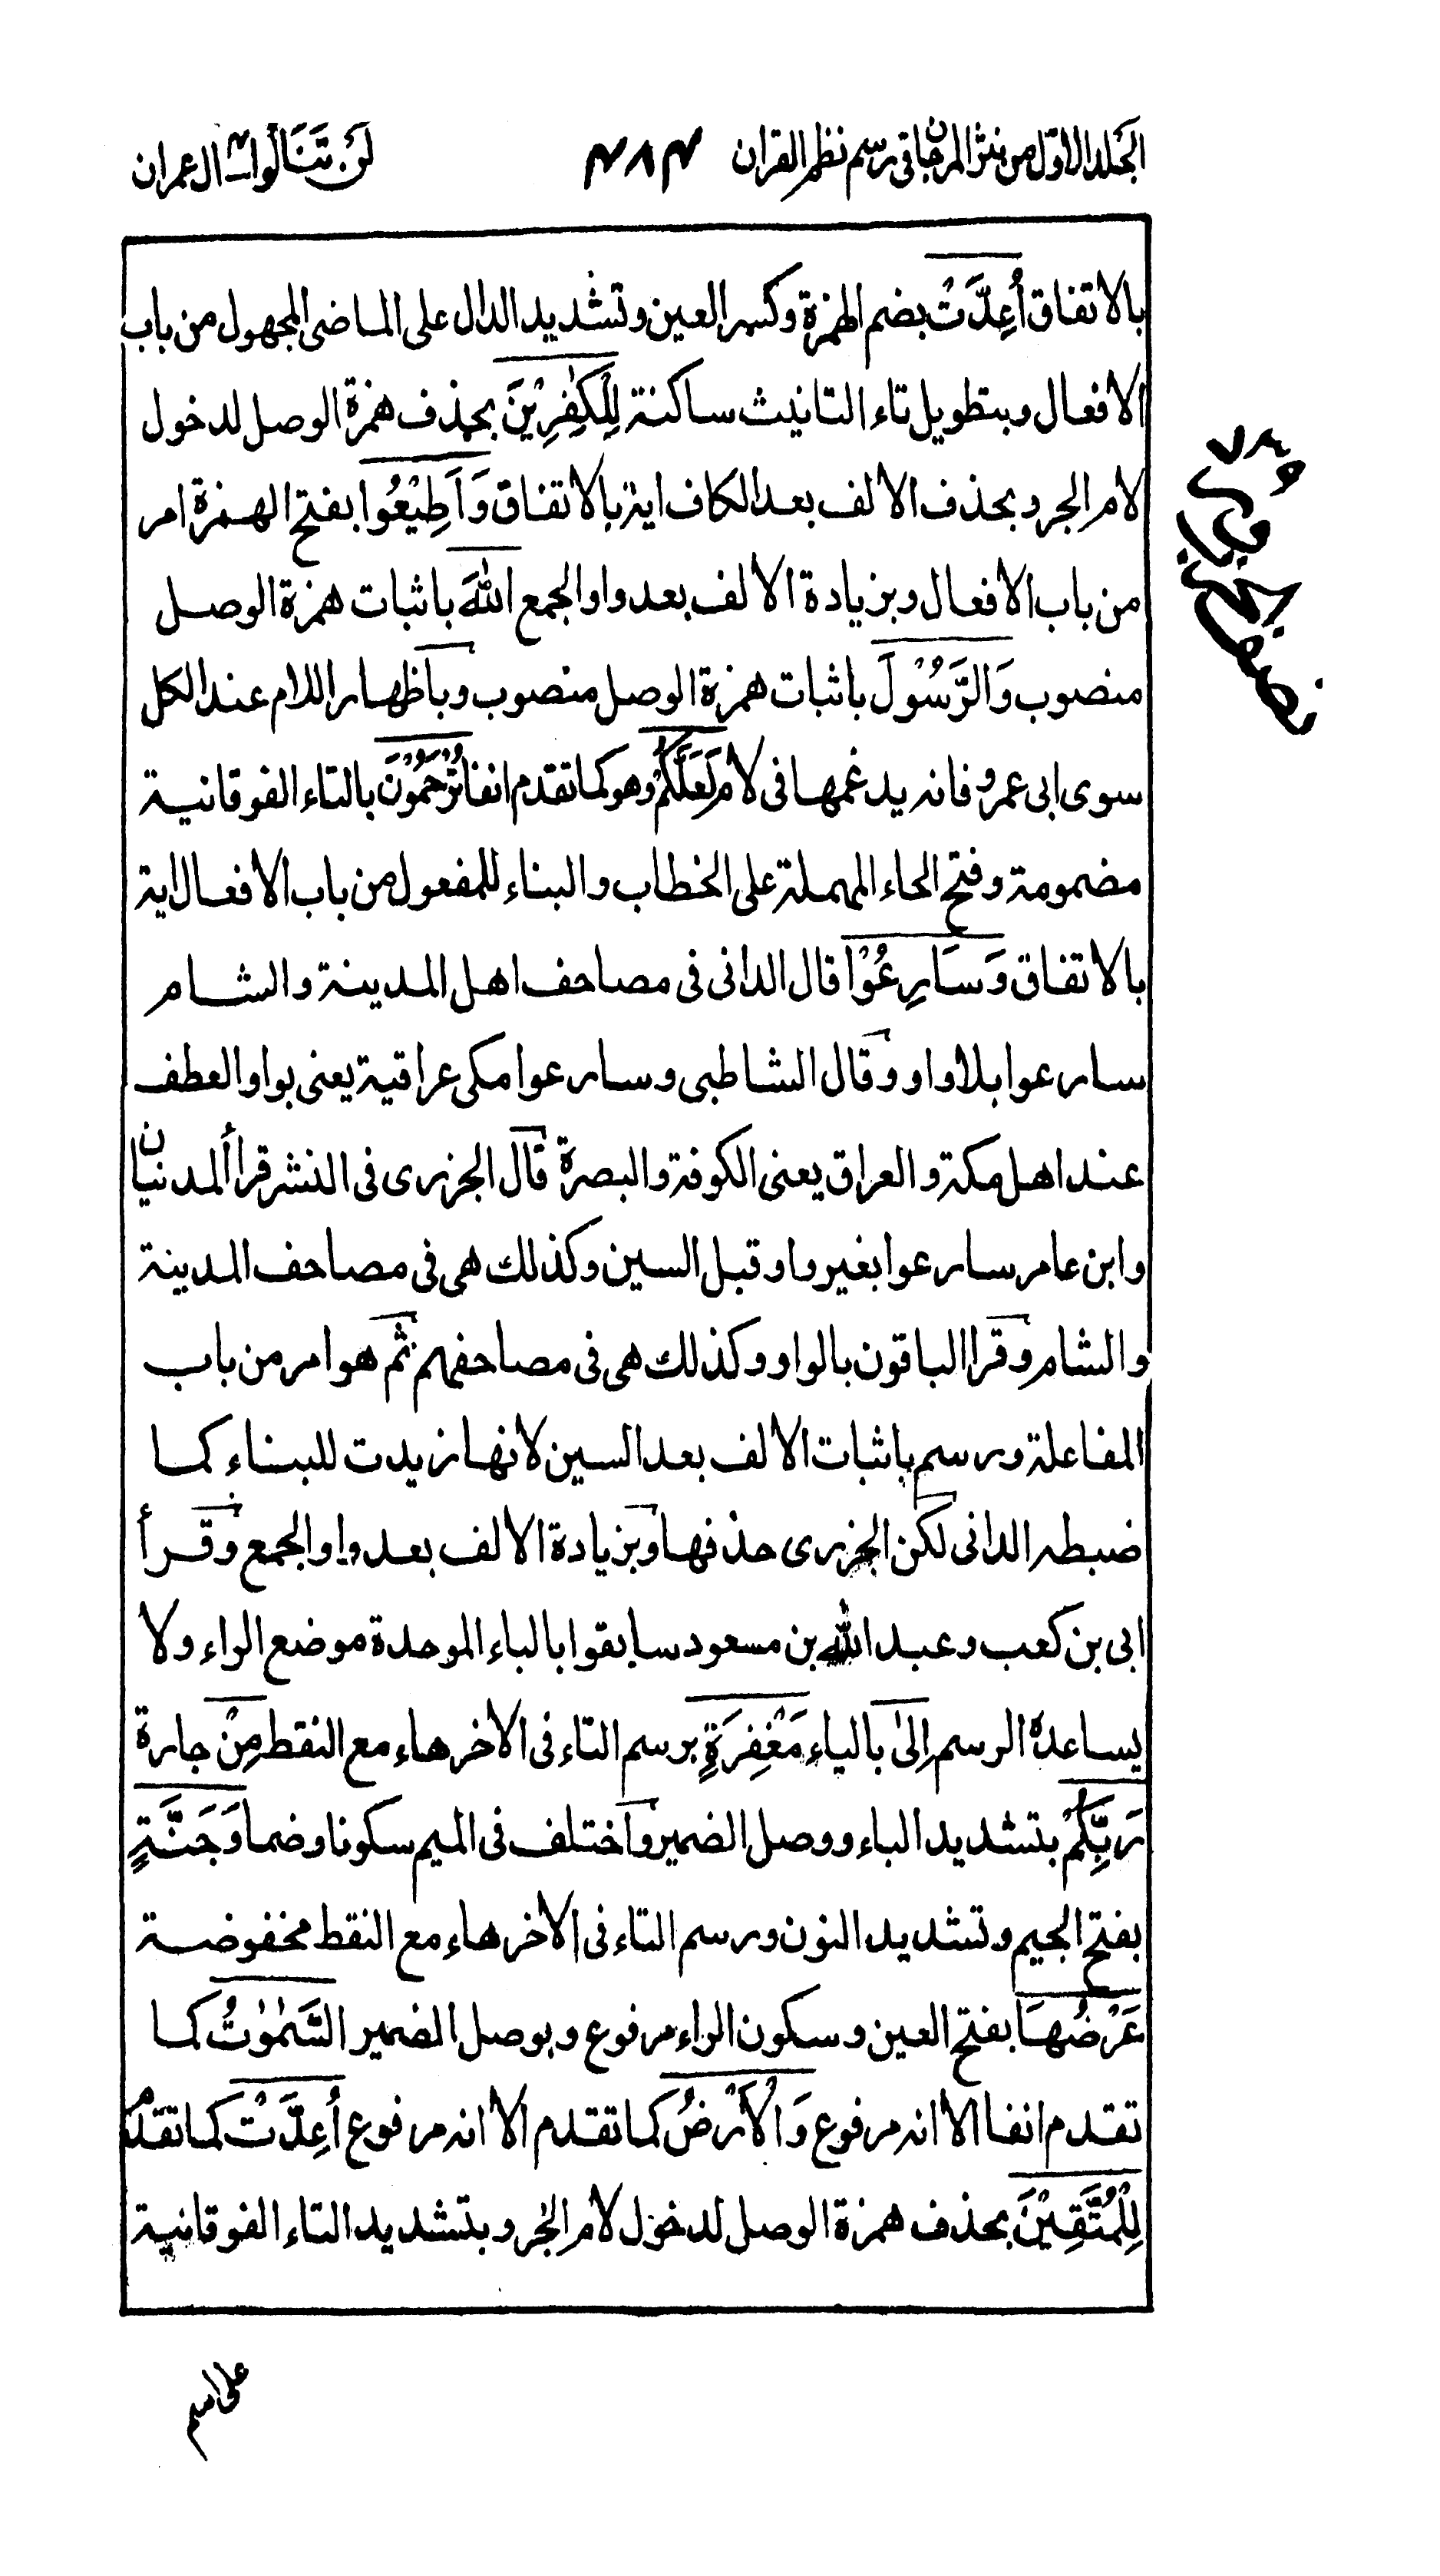 الجلد الاول من نثر المرجان فی رسم نظم القران ۴۸۴ لَنْ تَنَالُوا۴ ال عمران
بالاتفاق أُعِدَّتْ بضم الهمزة وكسر العين وتشديد الدال علی الماضی المجهول من باب
الافعال وبتطويل تاء التانيث ساكنة لِلْكٰفِرِيْنَ بحذف همزة الوصل لدخول
لام الجر وبحذف الالف بعد الكاف اية بالاتفاق وَاَطِيْعُوا بفتح الهمزة امر
من باب الافعال وبزيادة الالف بعد واو الجمع اللّٰهَ باثبات همزة الوصل
منصوب وَالرَّسُوْلَ باثبات همزة الوصل منصوب وباظهار اللام عند الكل
سوی ابی عمرو فانه يدغمها فی لام لَعَلَّكُمْ وهو كما تقدم انفا تُرْحَمُوْنَ بالتاء الفوقانية
مضمومة وفتح الحاء المهملة علی الخطاب والبناء للمفعول من باب الافعال اية
بالاتفاق وَسَارِعُوْا قال الدانی فی مصاحف اهل المدينة والشام
سارعوا بلا واو وقال الشاطبی وسارعوا مكی عراقية يعنی بواو العطف
عند اهل مكة والعراق يعنی الكوفة والبصرة قال الجزری فی النشر قرأ المدنيان
وابن عامر سارعوا بغير واو قبل السين وكذلك هی فی مصاحف المدينة
والشام وقرا الباقون بالواو وكذلك هی فی مصاحفهم ثم هو امر من باب
المفاعلة ورسم باثبات الالف بعد السين لانها زيدت للبناء كما
ضبطه الدانی لكن الجزری حذفها وبزيادة الالف بعد واو الجمع وقرأ
ابی بن كعب وعبد الله بن مسعود سابقوا بالباء الموحدة موضع الراء ولا
يساعده الرسم اِلیٰ بالياء مَغْفِرَةٍ برسم التاء فی الاخر هاء مع النقط مِنْ جارة
رَبِّكُمْ بتشديد الباء ووصل الضمير واختلف فی الميم سكونا وضما وَجَنَّةٍ
بفتح الجيم وتشديد النون ورسم التاء فی الاخر هاء مع النقط مخفوضة
عَرْضُهَا بفتح العين وسكون الراء مرفوع وبوصل الضمير السَّمٰوٰتُ كما
تقدم انفا الا انه مرفوع وَالْاَرْضُ كما تقدم الا انه مرفوع أُعِدَّتْ كما تقدم
لِلْمُتَّقِيْنَ بحذف همزة الوصل لدخول لام الجر وبتشديد التاء الفوقانية
علی اسم